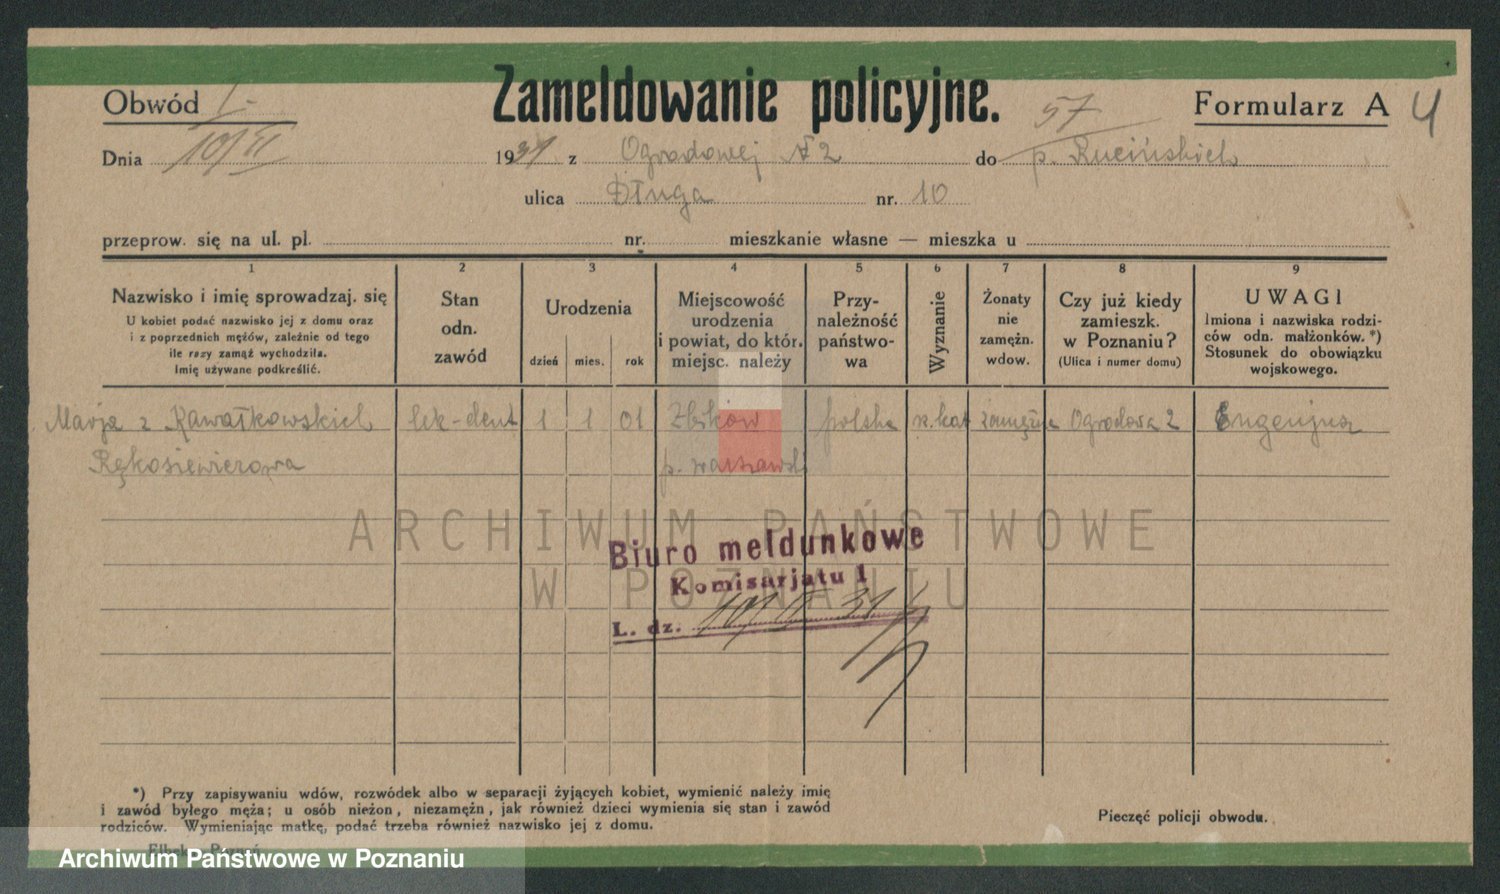 Zameldowanie policyjne.
Obwód I.
57
Formularz A 4
Dnia 10/VI 1931 z Ogrodowej N 2 do p. Rucińskich
ulica Długa nr. 10
przeprow. się na ul. pl. nr. mieszkanie własne — mieszka u
1 2 3 4 5 6 7 8 9
Nazwisko i imię sprowadzaj. się
U kobiet podać nazwisko jej z domu oraz
i z poprzednich mężów, zależnie od tego
ile razy zamąż wychodziła.
Imię używane podkreślić.
Stan
odn.
zawód
Urodzenia
dzień mies. rok
Miejscowość
urodzenia
i powiat, do któr.
miejsc. należy
Przy-
należność
państwo-
wa
Wyznanie
Żonaty
nie
zamężn.
wdow.
Czy już kiedy
zamieszk.
w Poznaniu?
(Ulica i numer domu)
UWAGI
Imiona i nazwiska rodzi-
ców odn. małżonków.*)
Stosunek do obowiązku
wojskowego.
Marja z Kawałkowskich lek-dent 1 1 01 Zbików polska rz. kat zamężna Ogrodowa 2 Eugenjusz
Rękosiewiczowa p. warszawski
ARCHIWUM PAŃSTWOWE
W POZNANIU
Biuro meldunkowe
Komisarjatu 1
L. dz.
*) Przy zapisywaniu wdów, rozwódek albo w separacji żyjących kobiet, wymienić należy imię
i zawód byłego męża; u osób nieżon, niezamężn, jak również dzieci wymienia się stan i zawód
rodziców. Wymieniając matkę, podać trzeba również nazwisko jej z domu.
Pieczęć policji obwodu.
Archiwum Państwowe w Poznaniu